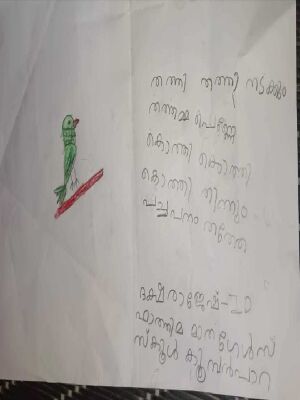 തത്തി തത്തി നടക്കും
തത്തമ്മ പെണ്ണേ
കൊത്തി കൊത്തി
കൊത്തി തിന്നും
പച്ചപനം തത്തേ
ദക്ഷ രാജേഷ്-I D
ഫാത്തിമ മാതാ
സ്കൂൾ